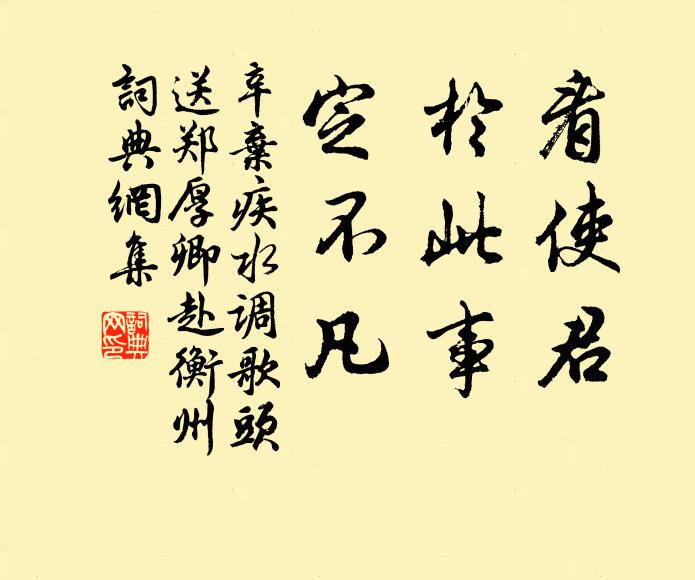 看使君
於此事
定不凡
辛棄疾水调歌頭
送郑厚卿赴衡州
詞典網集
詞典网印